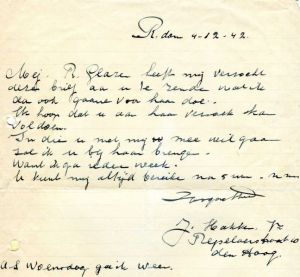 R.dam 4-12-42.
Mej. R. Glazer heeft mij verzocht
deze brief aan u te zenden
da ook gaarne voor haar doe.
Ik hoop dat u aan haar verzoek
voldoen.
In die u met mij mee wil gaan
zal ik u bij haar brengen.
Want ik ga ieder week.
U kunt mij altijd bereiken na 5 uur n.m.
J. Hakker Jz
den Haag.
A.S Woensdag ga ik weer.